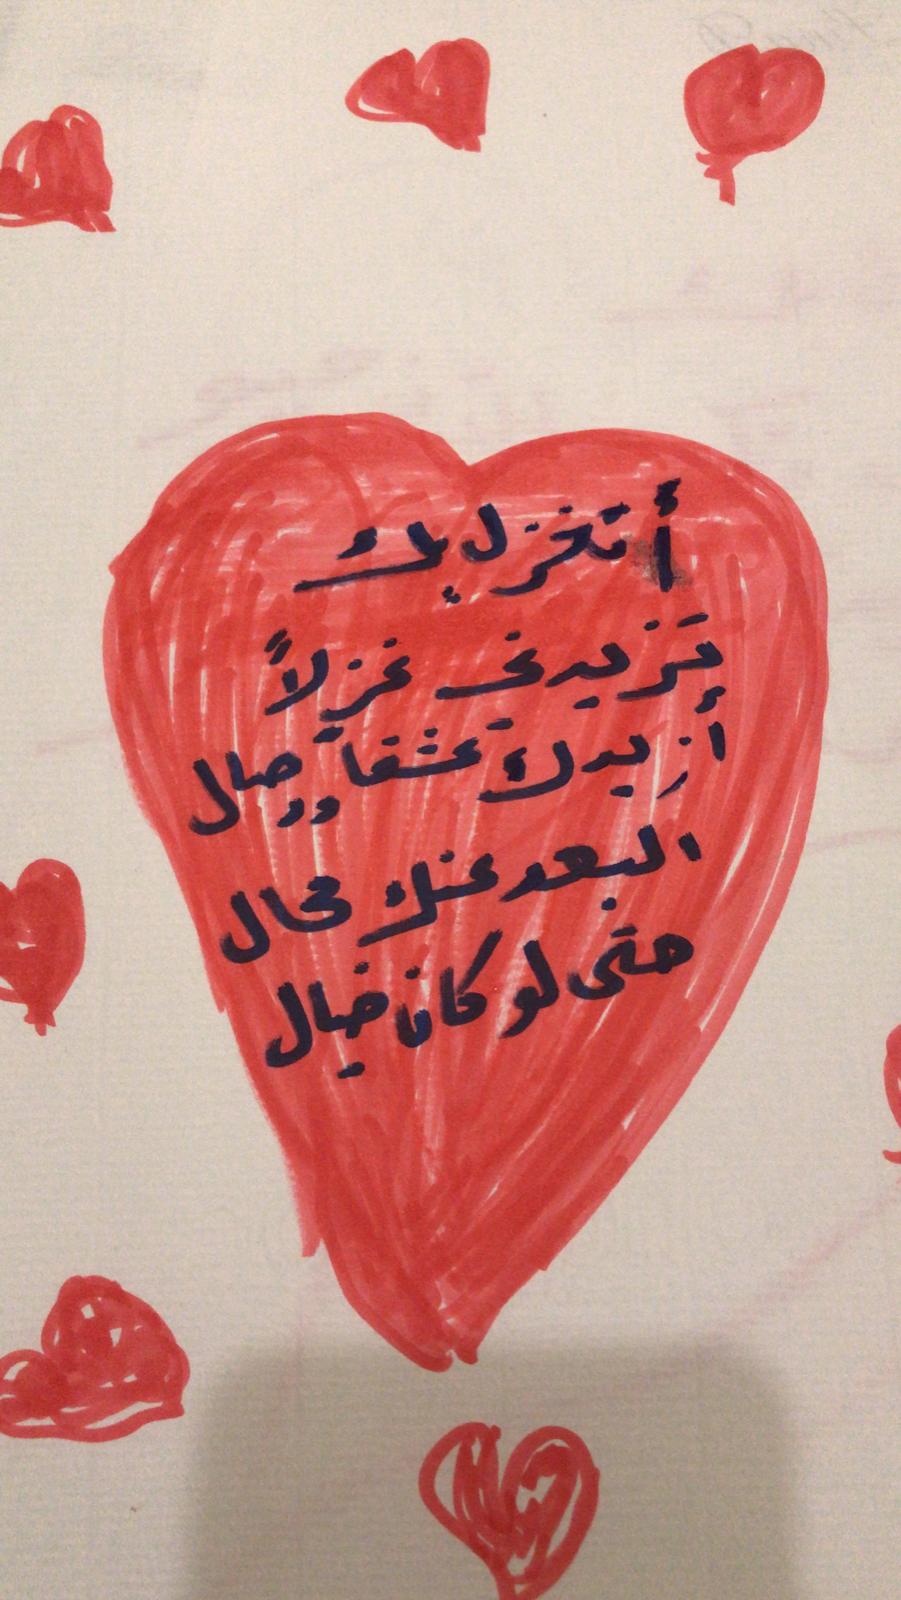 أتغزل بك
تَزيدني غزلاً
أزيدك عشقاً ووصال
البعد عنك محال
حتى لو كان خيال